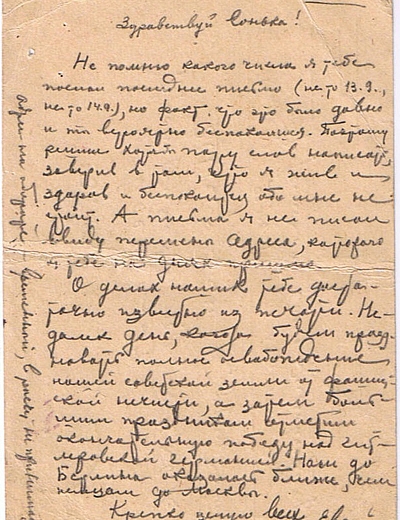 Здравствуй Сонька!
Не помню какого числа я тебе
послал последнее письмо (не то 13.9.,
не то 14.9.), но факт, что это было давно
и ты вероятно беспокоишся. Поэтому
решил хоть пару слов написать,
заверив в том, что я жив и
здоров и беспокоиться обо мне не
стоит. А письма я не писал
ввиду перемены адреса, которого
я тебе на днях
О делах наших тебе доста-
точно известно из печати. Не-
далек день, когда будем празд-
новать полное освобождение
нашей советской земли от фашист-
ской нечисти, а затем боль-
шим праздником отметим
окончательную победу над гит-
леровской Германией. Нам до
Берлина оказалось ближе, чем
немцам до Москвы.
Крепко целую всех